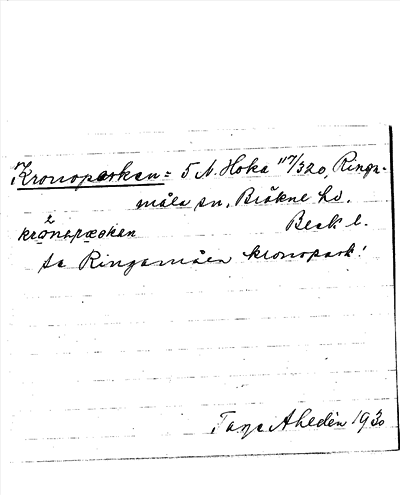 Kronoparken = 5 N. Hoka 117/320, Ringa-
måla sn, Bräkne hd.
Blek l.
krönspæṛkan
se Ringamåla kronopark!
Tage Ahldén 1930